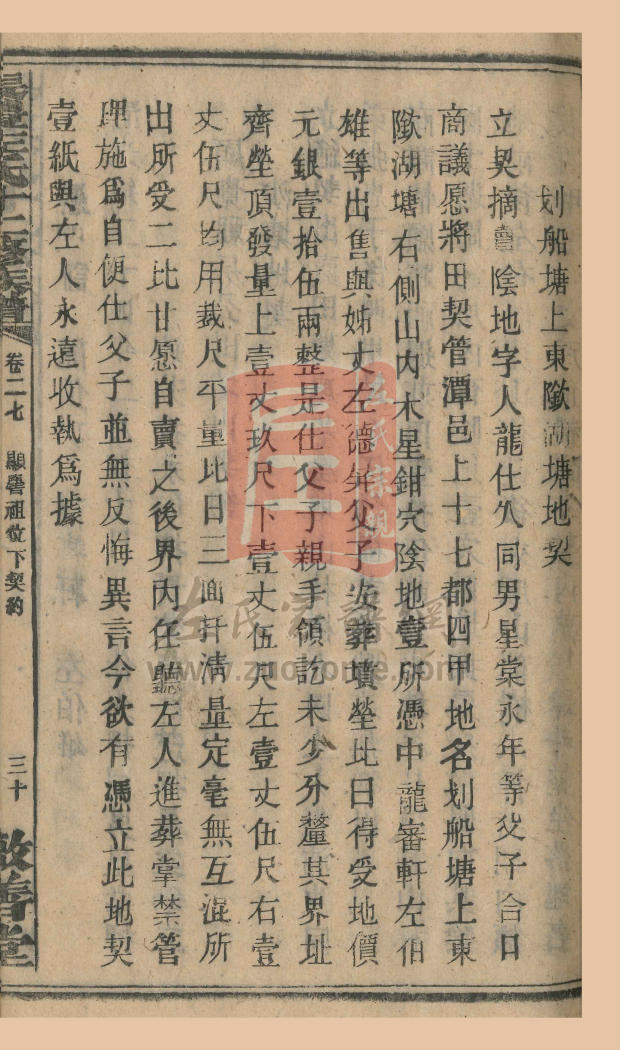 划船塘上東隙湖塘地契
立契摘賣陰地字人龍仕久同男星棠永年等父子合口
商議愿將田契管潭邑上十七都四甲地名划船塘上東
隙湖塘右側山內木星鉗穴陰地壹所憑中龍審軒左伯
雄等出售與姊丈左德 父子安葬墳塋比日得受地價
元銀壹拾伍兩整是仕父子親手領訖未少分釐其界址
齊塋頂發量上壹丈玖尺下壹丈伍尺左壹丈伍尺右壹
丈伍尺均用裁尺平量比日三面扦清量定毫無互混所
出所受二比甘愿自賣之後界內任聽左人進葬掌禁管
理施爲自便仕父子並無反悔異言今欲有憑立此地契
壹紙與左人永遠收執爲據
左氏十二修族譜
卷二七
顯 祖位下契約
三十
敦善堂
左氏宗親
左氏家譜網
www.zuohome.com